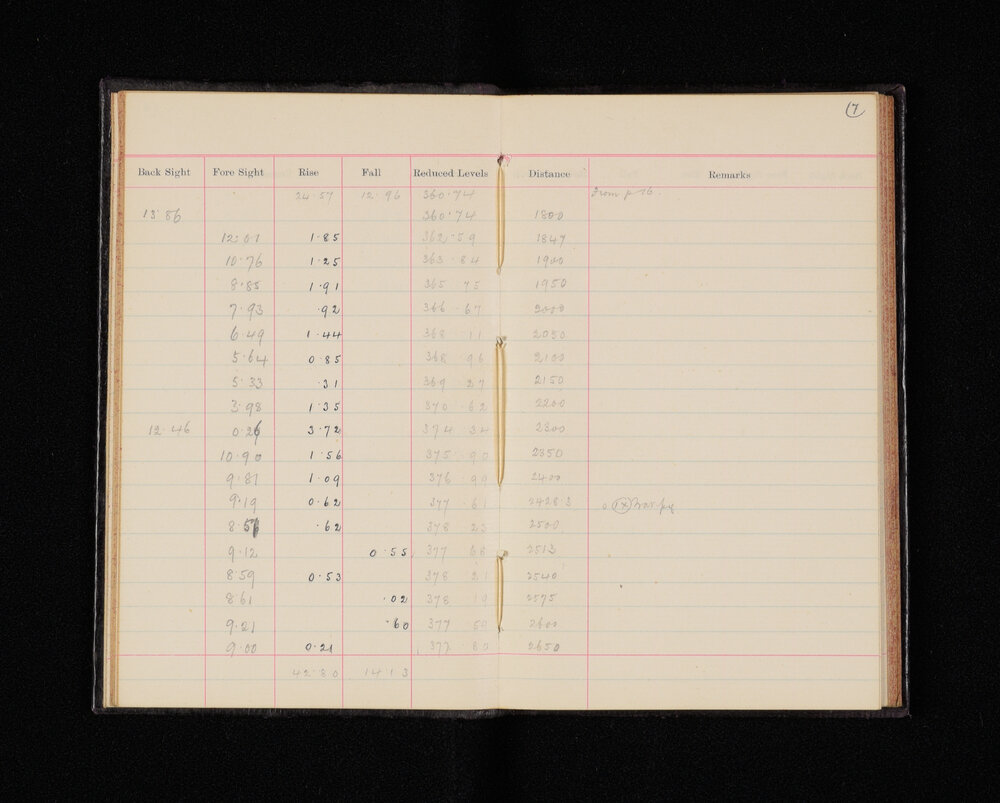 17
Back Sight Fore Sight Rise Fall Reduced Levels Distance Remarks
24·57 12·96 360·74 From p 16.
13·86 360·74 1800
12·01 1·85 362·59 1847
10·76 1·25 363·84 1900
8·85 1·91 365 75 1950
7·93 ·92 366 67 2000
6·49 1·44 368 11 2050
5·64 0·85 368 96 2100
5·33 ·31 369 27 2150
3·98 1·35 370·62 2200
12·46 0·26 3·72 374 34 2300
10·90 1·56 375·90 2350
9·81 1·09 376·99 2400
9·19 0·62 377·61 2428·3
8 57 ·62 378 23 2500
9·12 0·55 377 68 2513
8·59 0·53 378 21 2540
8·61 ·02 378 19 2575
9·21 ·60 377 59 2600
9·00 0·21 377 80 2650
42·80 14·13